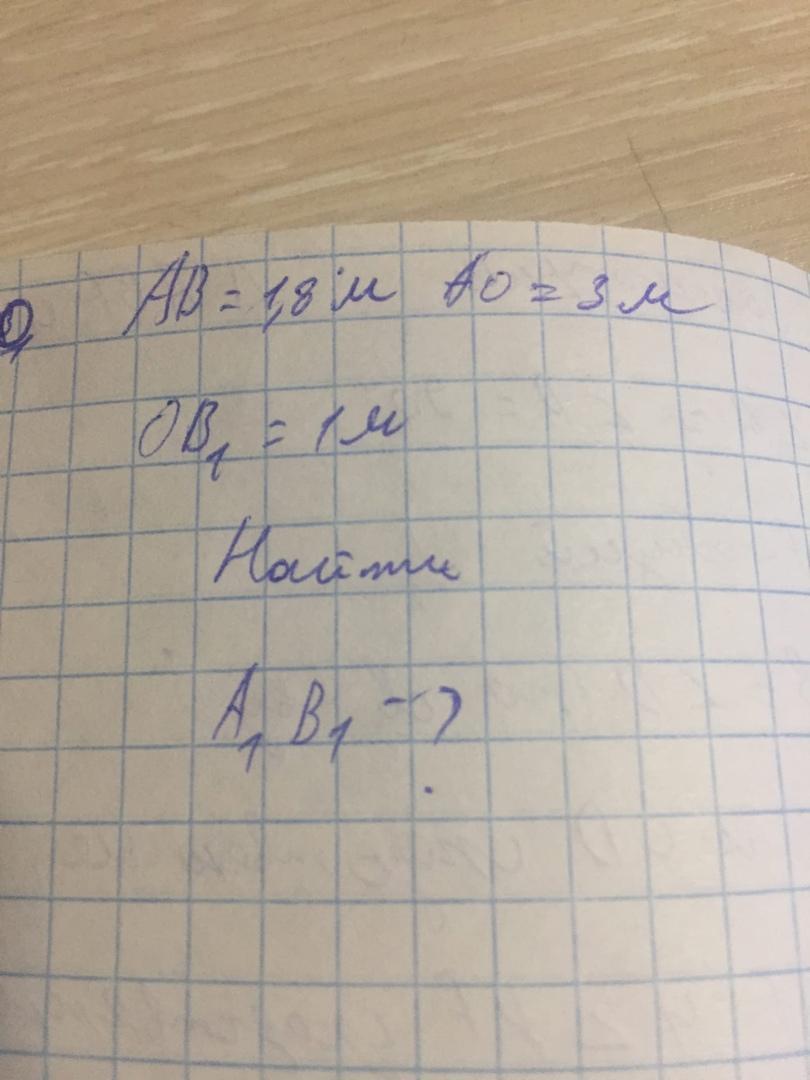 AB = 1,8 м AO = 3 м
OB₁ = 1 м
Найти
A₁B₁ - ?